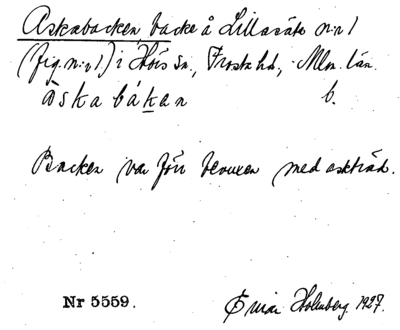 Askabacken, backe å Lillasäte n:r 1
(fig. n:r 1) i Höörs sn., Frosta hd., Mlm. län.
àska bákan b.
Backen var förr bevuxen med askträd.
Nr 5559.
Einar Holmberg 1927.